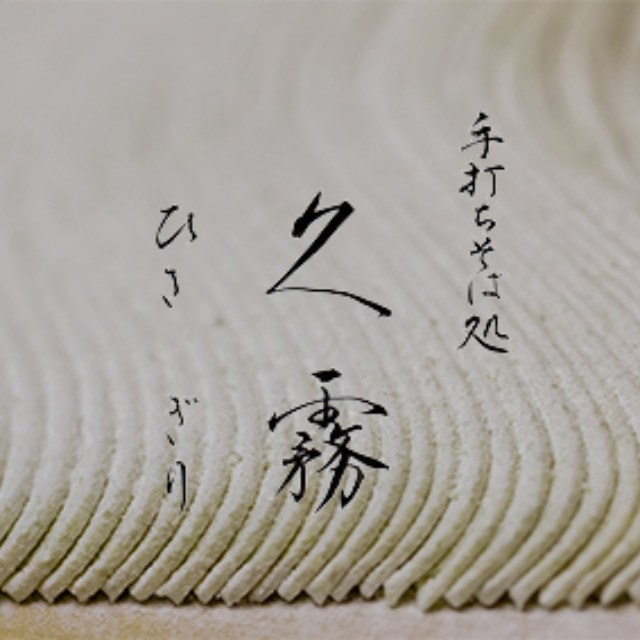 手打ちそば処
久霧
ひさぎり